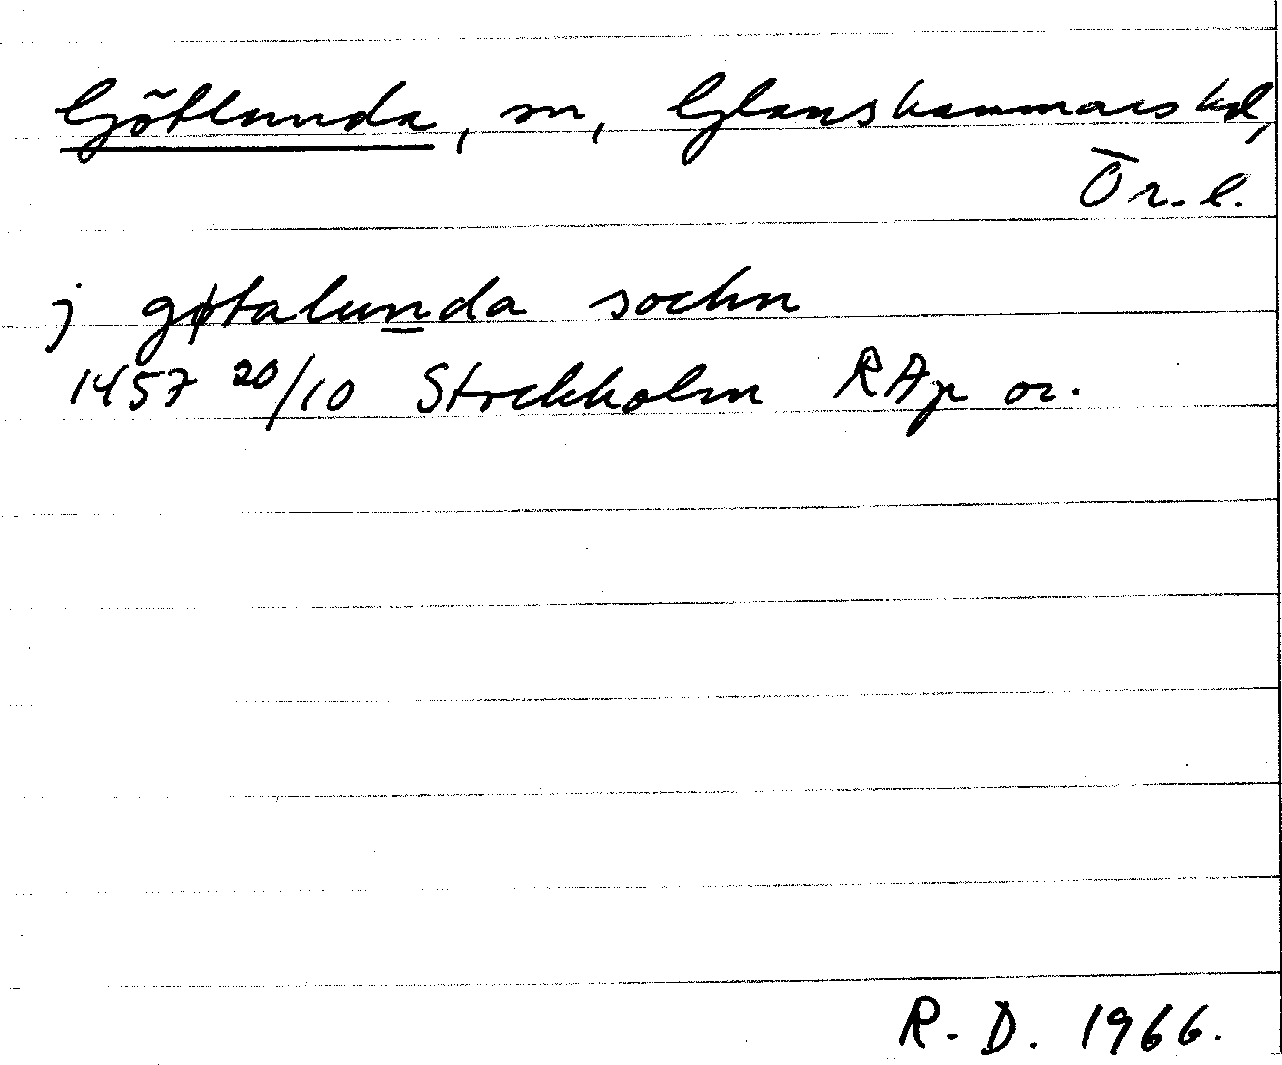 Götlunda, sn, Glanshammars hd,
Ör. l.
j gøtalunda sochn
1457 20/10 Stockholm RAp or.
R. D. 1966.